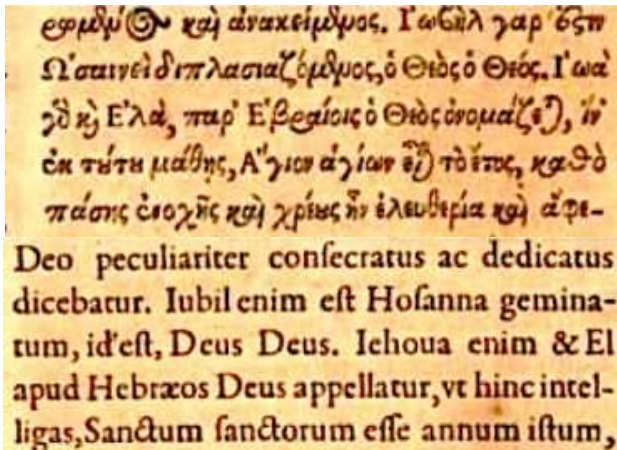 καὶ ἀνακείμενος. Ἰωβὴλ γὰρ
Ὡσαιννεὶ διπλασιαζόμενος, ὁ Θεὸς ὁ Θεός. Ἰωὰ
γὰρ καὶ Ἐλὰ, παρ' Ἑβραίοις ὁ Θεὸς ὀνομάζεται, ἵν'
ἐκ τούτου μάθῃς, Ἅγιον ἁγίων εἶναι τὸ ἔτος, καθὸ
πάσης ἐνοχῆς καὶ χρέους ἦν ἐλευθερία καὶ ἄφε-
Deo peculiariter conſecratus ac dedicatus
dicebatur. Iubil enim eſt Hoſanna gemina-
tum, id eſt, Deus Deus. Iehoua enim & El
apud Hebræos Deus appellatur, vt hinc intel-
ligas, Sanctum ſanctorum eſſe annum iſtum,